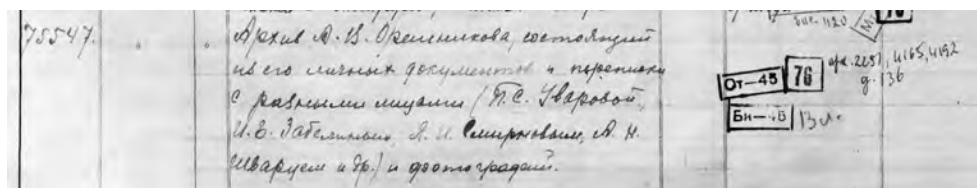 75547.
Архив А. В. Орешникова, состоящий
из его личных документов и переписки
с разными лицами (П. С. Уваровой,
И. Е. Забелиным, Я. И. Смирновым, А. Н.
Шварцем и др.) и фотографий.
От-45 76 арх. 2251, 4165, 4192
д. 136
Бн-45 13 л.